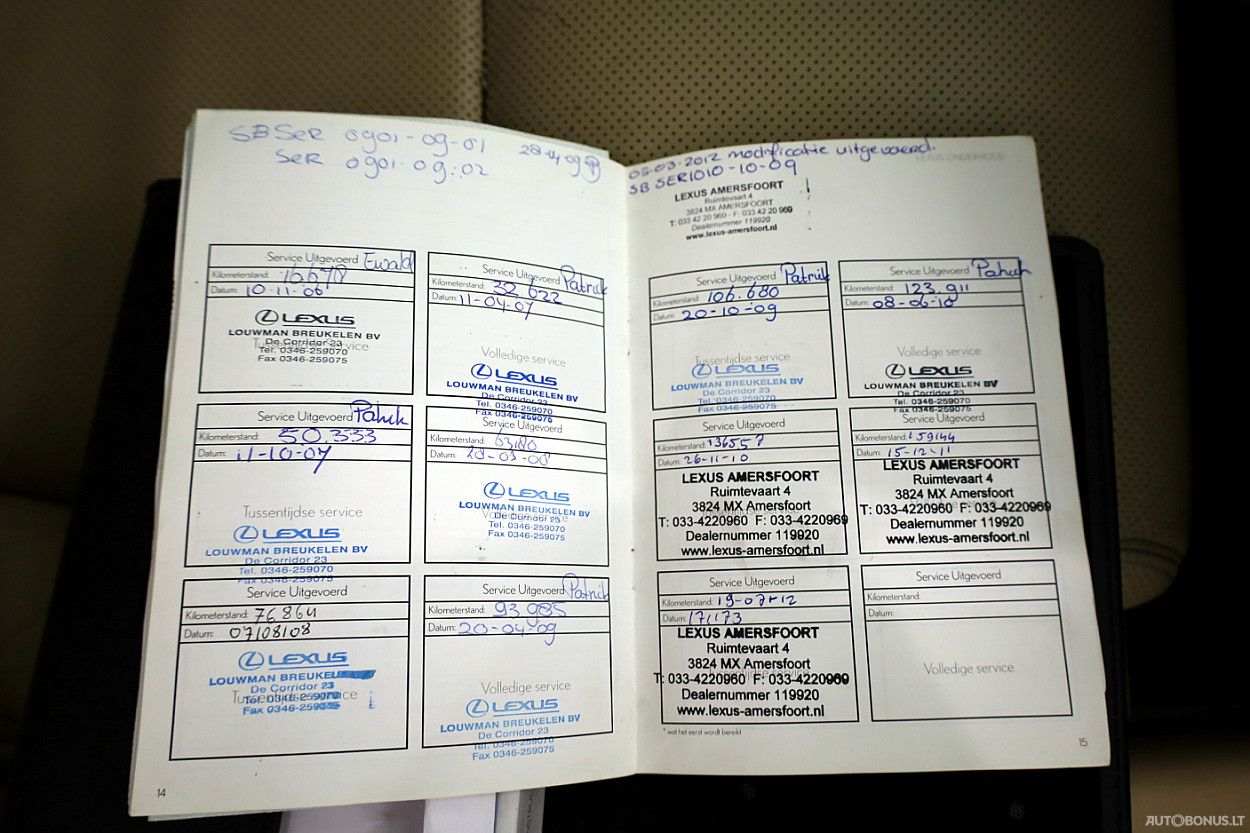 SB SER 0901-09-01
SER 0901-09-02
28-04-09
Service Uitgevoerd Ewald
Kilometerstand: 16678
Datum: 10-11-06
LEXUS
LOUWMAN BREUKELEN BV
De Corridor 23
Tussentijdse service
Tel. 0346-259070
Fax 0346-259075
Service Uitgevoerd Patrick
Kilometerstand: 32622
Datum: 11-04-07
Volledige service
LEXUS
LOUWMAN BREUKELEN BV
De Corridor 23
Tel. 0346-259070
Fax 0346-259075
Service Uitgevoerd Patrick
Kilometerstand: 50.333
Datum: 11-10-07
Tussentijdse service
LEXUS
LOUWMAN BREUKELEN BV
De Corridor 23
Tel. 0346-259070
Fax 0346-259075
Service Uitgevoerd
Kilometerstand:
Datum:
LEXUS
LOUWMAN BREUKELEN BV
De Corridor 23
Tel. 0346-259070
Fax 0346-259075
Service Uitgevoerd
Kilometerstand: 76864
Datum: 07/08/08
LEXUS
LOUWMAN BREUKELEN
De Corridor 23
Tussentijdse service
Tel. 0346-259070
Fax 0346-259075
Service Uitgevoerd Patrick
Kilometerstand: 93.985
Datum: 20-04-09
Volledige service
LEXUS
LOUWMAN BREUKELEN BV
De Corridor 23
Tel. 0346-259070
Fax 0346-259075
14
LEXUS ONDERHOUD
05-03-2012 modificatie uitgevoerd.
SB SER1010-10-09
LEXUS AMERSFOORT
Ruimtevaart 4
3824 MX AMERSFOORT
T: 033 42 20 960 - F: 033 42 20 969
Dealernummer 119920
www.lexus-amersfoort.nl
Service Uitgevoerd Patrick
Kilometerstand: 106.680
Datum: 20-10-09
Tussentijdse service
LEXUS
LOUWMAN BREUKELEN BV
De Corridor 23
Tel. 0346-259070
Fax 0346-259075
Service Uitgevoerd Patrick
Kilometerstand: 123.911
Datum: 08-06-10
Volledige service
LEXUS
LOUWMAN BREUKELEN BV
De Corridor 23
Tel. 0346-259070
Fax 0346-259075
Service Uitgevoerd
Kilometerstand: 136557
Datum: 26-11-10
LEXUS AMERSFOORT
Ruimtevaart 4
3824 MX Amersfoort
T: 033-4220960 F: 033-4220969
Dealernummer 119920
www.lexus-amersfoort.nl
Service Uitgevoerd
Kilometerstand: 159144
Datum: 15-12-11
LEXUS AMERSFOORT
Ruimtevaart 4
3824 MX Amersfoort
T: 033-4220960 F: 033-4220969
Dealernummer 119920
www.lexus-amersfoort.nl
Service Uitgevoerd
Kilometerstand: 19-07-12
Datum: 171173
LEXUS AMERSFOORT
Ruimtevaart 4
3824 MX Amersfoort
T: 033-4220960 F: 033-4220969
Dealernummer 119920
www.lexus-amersfoort.nl
Service Uitgevoerd
Kilometerstand:
Datum:
Volledige service
* wat het eerst wordt bereikt
15
AUTOBONUS.LT